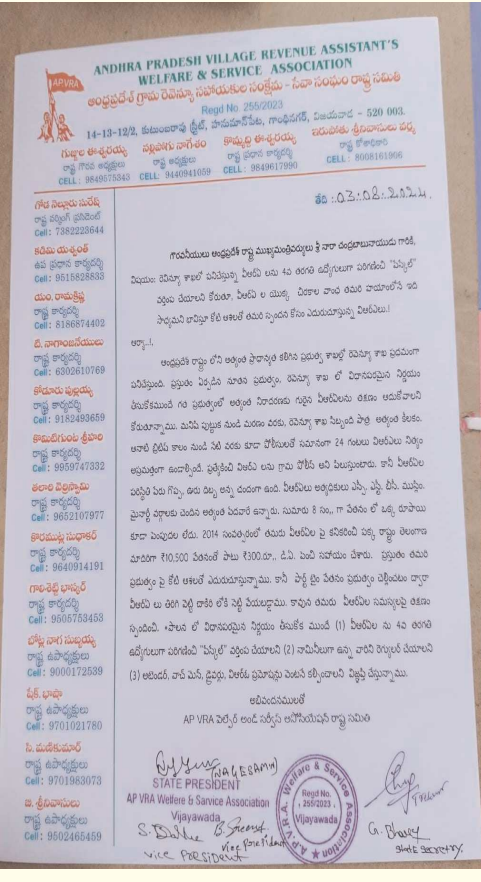 APVRA
ANDHRA PRADESH VILLAGE REVENUE ASSISTANT'S
WELFARE & SERVICE ASSOCIATION
ఆంధ్రప్రదేశ్ గ్రామ రెవెన్యూ సహాయకుల సంక్షేమ - సేవా సంఘం రాష్ట్ర సమితి
Regd No. 255/2023
14-13-12/2, కుటుంబరావు స్ట్రీట్, హనుమాన్‌పేట, గాంధీనగర్, విజయవాడ - 520 003.
గుజ్జుల ఈశ్వరయ్య
రాష్ట్ర గౌరవ అధ్యక్షులు
CELL : 9849575343
నల్లిపోగు నాగేశం
రాష్ట్ర అధ్యక్షులు
CELL : 9440941059
కొమ్మద్ది ఈశ్వరయ్య
రాష్ట్ర ప్రధాన కార్యదర్శి
CELL : 9849617990
ఇరుపోతు శ్రీనివాసులు వర్మ
రాష్ట్ర కోశాధికారి
CELL : 8008161906
గోడ నెల్లూరు సురేష్
రాష్ట్ర వర్కింగ్ ప్రెసిడెంట్
Cell : 7382223644
కదిమి యశ్వంత్
ఉప ప్రధాన కార్యదర్శి
Cell : 9515828833
యం. రామకృష్ణ
రాష్ట్ర కార్యదర్శి
Cell : 8186874402
టి. నాగాంజనేయులు
రాష్ట్ర కార్యదర్శి
Cell : 6302610769
కోడూరు పుల్లయ్య
రాష్ట్ర కార్యదర్శి
Cell : 9182493659
కొమిటిగుంట శ్రీహరి
రాష్ట్ర కార్యదర్శి
Cell : 9959747332
తలారి వెర్రిస్వామి
రాష్ట్ర కార్యదర్శి
Cell : 9652107977
కొరముట్ల సుధాకర్
రాష్ట్ర కార్యదర్శి
Cell : 9640914191
గాలిశెట్టి భాస్కర్
రాష్ట్ర కార్యదర్శి
Cell : 9505753453
బోట్ల నాగ సుబ్బయ్య
రాష్ట్ర ఉపాధ్యక్షులు
Cell : 9000172539
షేక్. భాషా
రాష్ట్ర ఉపాధ్యక్షులు
Cell : 9701021780
సి. మణికుమార్
రాష్ట్ర ఉపాధ్యక్షులు
Cell : 9701983073
ఐ. శ్రీనివాసులు
రాష్ట్ర ఉపాధ్యక్షులు
Cell : 9502465459
తేది : 03-08-2024
గౌరవనీయులు ఆంధ్రప్రదేశ్ రాష్ట్ర ముఖ్యమంత్రివర్యులు శ్రీ నారా చంద్రబాబునాయుడు గారికి,
విషయం: రెవిన్యూ శాఖలో పనిచేస్తున్న వీఆర్ఏ లను 4వ తరగతి ఉద్యోగులుగా పరిగణించి "పేస్కేల్"
వర్తింప చేయాలని కోరుతూ, వీఆర్ఏ ల యొక్క చిరకాల వాంఛ తమరి హయాంలోనే ఇది
సాధ్యమని భావిస్తూ కోటి ఆశలతో తమరి స్పందన కోసం ఎదురుచూస్తున్న వీఆర్ఏలు.!
ఆర్యా..!,
ఆంధ్రప్రదేశ్ రాష్ట్రం లోని అత్యంత ప్రాధాన్యత కలిగిన ప్రభుత్వ శాఖల్లో రెవిన్యూ శాఖ ప్రథమంగా
పనిచేస్తుంది. ప్రస్తుతం ఏర్పడిన నూతన ప్రభుత్వం, రెవిన్యూ శాఖ లో విధానపరమైన నిర్ణయం
తీసుకోకముందే గత ప్రభుత్వంలో అత్యంత నిరాదరణకు గురైన వీఆర్ఏలను తక్షణం ఆదుకోవాలని
కోరుతున్నాము. మనిషి పుట్టుక నుండి మరణం వరకు, రెవిన్యూ శాఖ సిబ్బంది పాత్ర అత్యంత కీలకం.
ఆనాటి బ్రిటిష్ కాలం నుండి నేటి వరకు కూడా పోలీసులతో సమానంగా 24 గంటలు వీఆర్ఏలు నిత్యం
అప్రమత్తంగా ఉండాల్సిందే. ప్రత్యేకించి వీఆర్ఏ లను గ్రామ పోలీస్ అని పిలుస్తుంటారు. కానీ వీఆర్ఏల
పరిస్థితి పేరు గొప్ప, ఊరు దిబ్బ అన్న చందంగా ఉంది. వీఆర్ఏలు అత్యధికులు ఎస్సీ, ఎస్టీ, బీసీ, ముస్లిం,
మైనార్టీ వర్గాలకు చెందిన అత్యంత పేదవారే ఉన్నారు. సుమారు 8 సం,, గా వేతనం లో ఒక్క రూపాయి
కూడా పెంపుదల లేదు. 2014 సంవత్సరంలో తమరు వీఆర్ఏల పై కనికరించి పక్క రాష్ట్రం తెలంగాణ
మాదిరిగా ₹10,500 వేతనంతో పాటు ₹300రూ., డి.ఏ. పెంచి సహాయం చేశారు. ప్రస్తుతం తమరి
ప్రభుత్వం పై కోటి ఆశలతో ఎదురుచూస్తున్నాము. కానీ పార్ట్ టైం వేతనం ప్రభుత్వం చెల్లించటం ద్వారా
వీఆర్ఏ లు తిరిగి వెట్టి చాకిరి లోకి నెట్టి వేయబడ్డాము. కావున తమరు వీఆర్ఏల సమస్యలపై తక్షణం
స్పందించి, పాలన లో విధానపరమైన నిర్ణయం తీసుకోక ముందే (1) వీఆర్ఏ లను 4వ తరగతి
ఉద్యోగులుగా పరిగణించి "పేస్కేల్" వర్తింప చేయాలని (2) నామినీలుగా ఉన్న వారిని రెగ్యులర్ చేయాలని
(3) అటెండర్, వాచ్ మెన్, డ్రైవర్లు, వీఆర్ఓ ప్రమోషన్లు వెంటనే కల్పించాలని విజ్ఞప్తి చేస్తున్నాము.
అభివందనములతో
AP VRA వెల్ఫేర్ అండ్ సర్వీస్ అసోసియేషన్ రాష్ట్ర సమితి
(NAGESAM)
STATE PRESIDENT
AP VRA Welfare & Sarvice Association
Vijayawada
A.P.V.R.A. Welfare & Service Association
Regd No.
255/2023
Vijayawada
vice PORSIDENT
vice President
State Secretary.